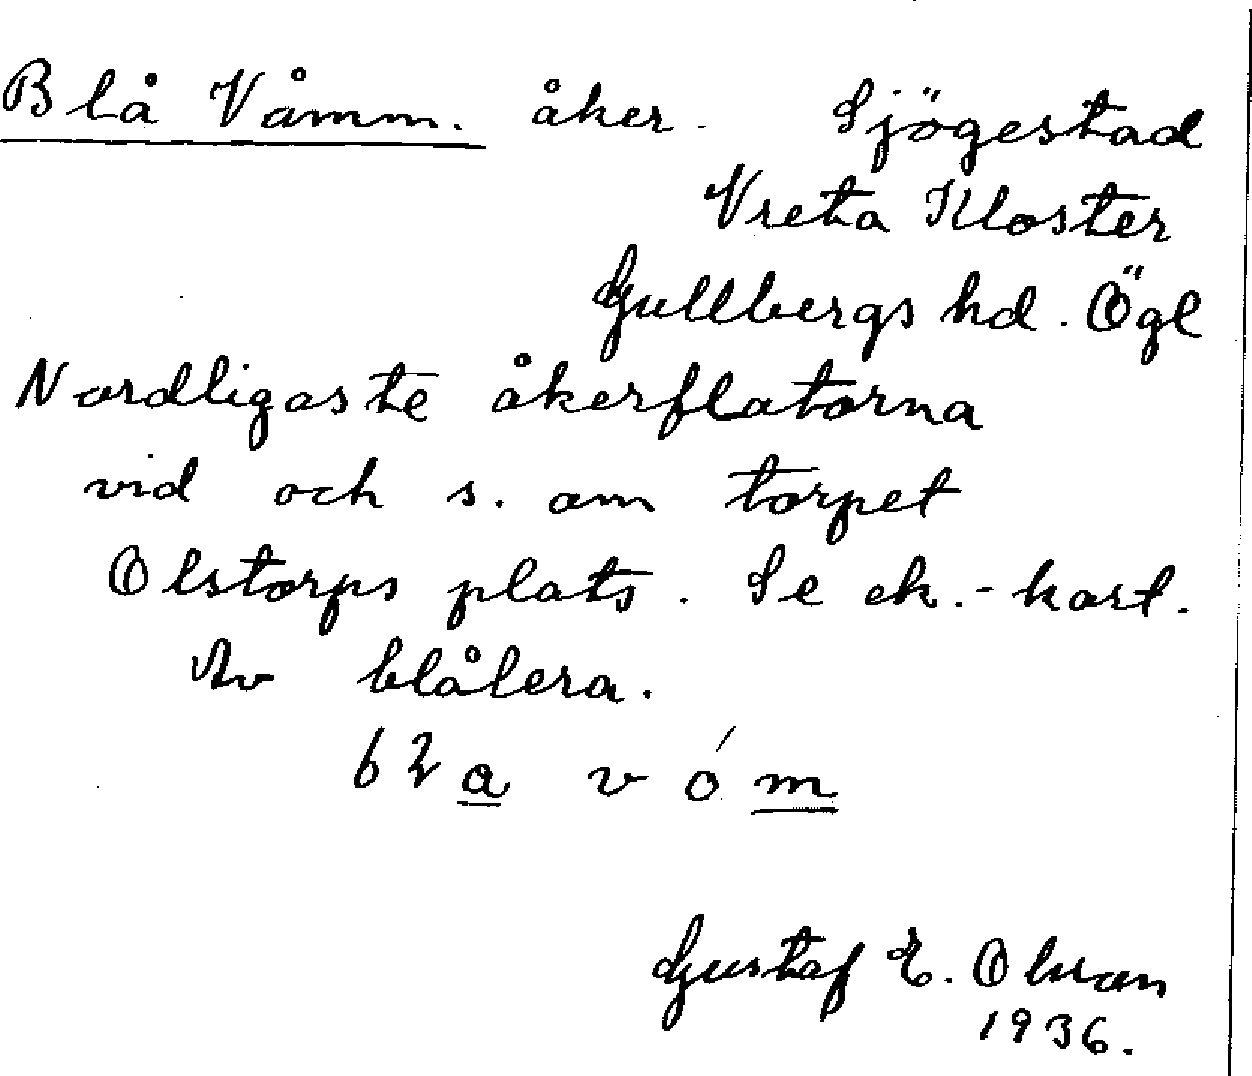 Blå Våmm. åker. Sjögestad
Vreta Kloster
Gullbergs hd. Ögl
Nordligaste åkerflatorna
vid och s. om torpet
Olstorps plats. Se ek.-kart.
Av blålera.
a v ó m
Gustaf E. Olsson
1936.